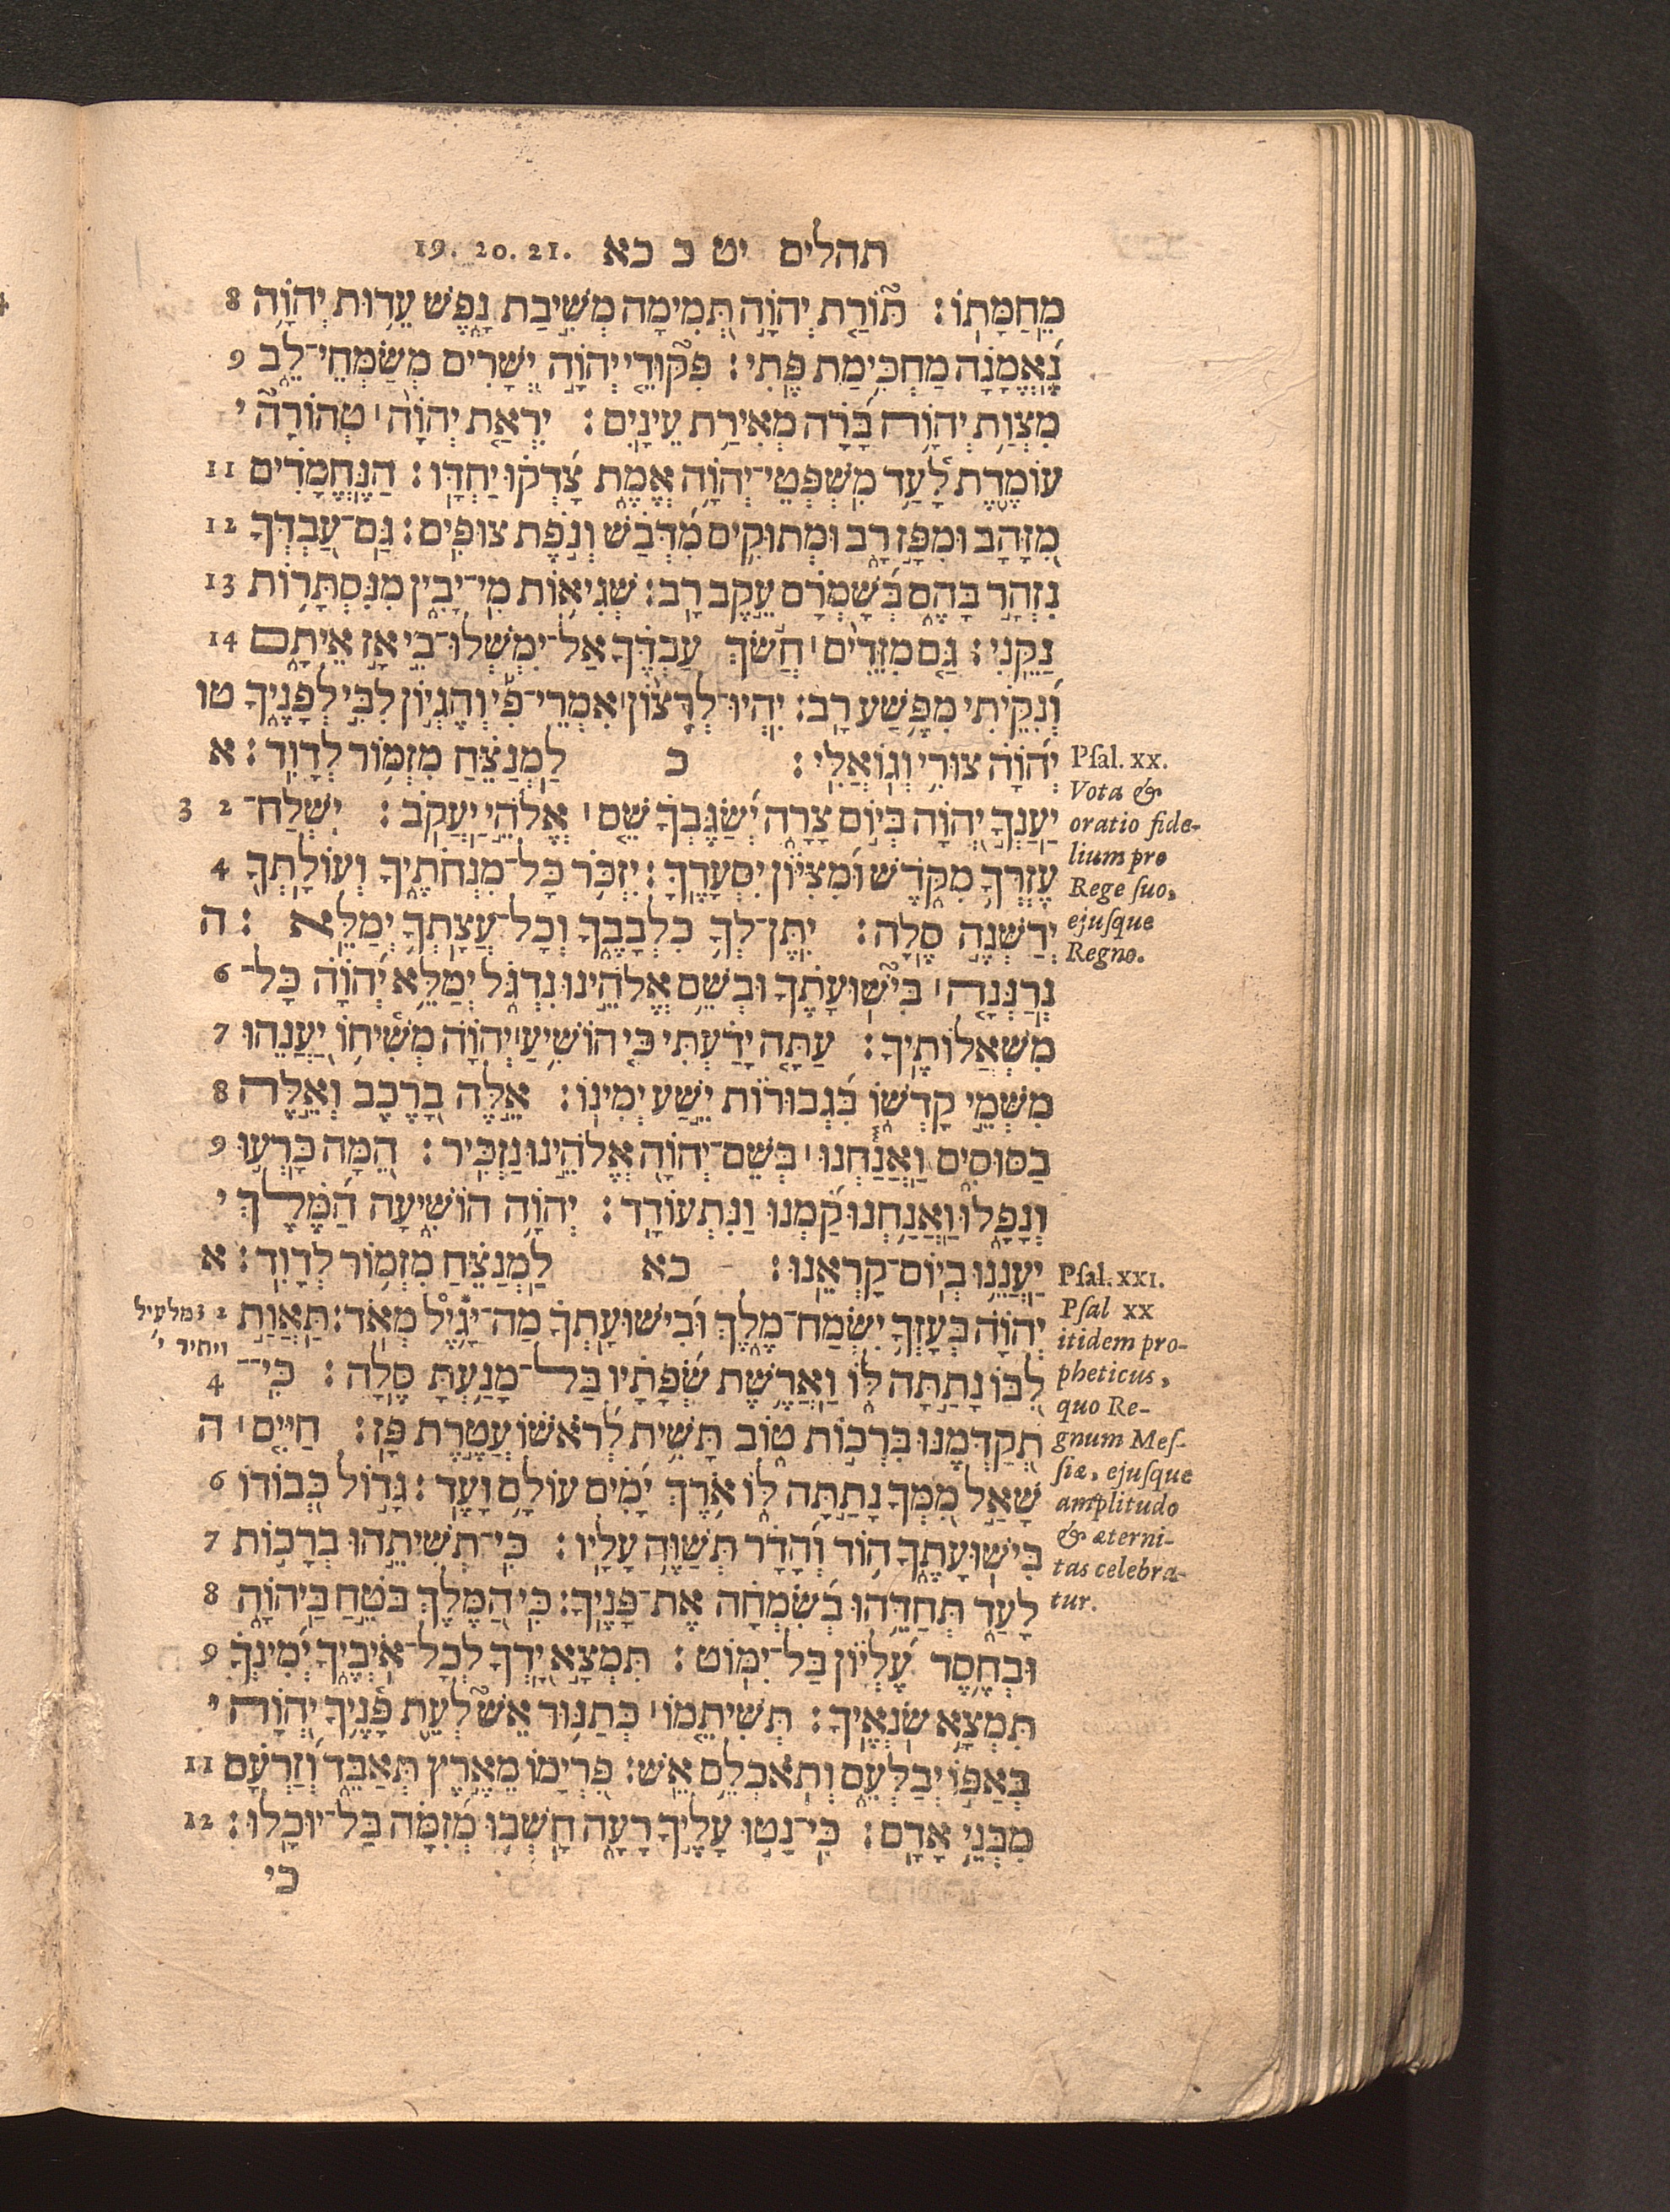 תהלים יט כ כא 19. 20. 21.
מֵחַמָּתוֹ׃ תּוֹרַת יְהוָֹה תְּמִימָה מְשִׁיבַת נָפֶשׁ עֵדוּת יְהוָֹה 8
נֶאֱמָנָה מַחְכִּימַת פֶּתִי׃ פִּקּוּדֵי יְהוָֹה יְשָׁרִים מְשַׂמְּחֵי־לֵב 9
מִצְוַת יְהוָֹה בָּרָה מְאִירַת עֵינָיִם׃ יִרְאַת יְהוָֹה ׀ טְהוֹרָה י
עוֹמֶדֶת לָעַד מִשְׁפְּטֵי־יְהוָֹה אֱמֶת צָדְקוּ יַחְדָּו׃ הַנֶּחֱמָדִים 11
מִזָּהָב וּמִפַּז רָב וּמְתוּקִים מִדְּבַשׁ וְנֹפֶת צוּפִים׃ גַּם־עַבְדְּךָ 12
נִזְהָר בָּהֶם בְּשָׁמְרָם עֵקֶב רָב׃ שְׁגִיאוֹת מִי־יָבִין מִנִּסְתָּרוֹת 13
נַקֵּנִי׃ גַּם מִזֵּדִים ׀ חֲשֹׂךְ עַבְדֶּךָ אַל־יִמְשְׁלוּ־בִי אָז אֵיתָם 14
וְנִקֵּיתִי מִפֶּשַׁע רָב׃ יִהְיוּ־לְרָצוֹן ׀ אִמְרֵי־פִי וְהֶגְיוֹן לִבִּי לְפָנֶיךָ טו
יְהוָֹה צוּרִי וְגוֹאֲלִי׃ כ לַמְנַצֵּחַ מִזְמוֹר לְדָוִד׃ א
יַעַנְךָ יְהוָֹה בְּיוֹם צָרָה יְשַׂגֶּבְךָ שֵׁם ׀ אֱלֹהֵי יַעֲקֹב׃ יִשְׁלַח־ 2 3
עֶזְרְךָ מִקֹּדֶשׁ וּמִצִּיּוֹן יִסְעָדֶךָּ׃ יִזְכֹּר כָּל־מִנְחֹתֶיךָ וְעוֹלָתְךָ 4
יְדַשְּׁנֶה סֶלָה׃ יִתֶּן־לְךָ כִלְבָבֶךָ וְכָל־עֲצָתְךָ יְמַלֵּא׃ ה
נְרַנְּנָה ׀ בִּישׁוּעָתֶךָ וּבְשֵׁם אֱלֹהֵינוּ נִדְגֹּל יְמַלֵּא יְהוָֹה כָּל־ 6
מִשְׁאֲלוֹתֶיךָ׃ עַתָּה יָדַעְתִּי כִּי הוֹשִׁיעַ ׀ יְהוָֹה מְשִׁיחוֹ יַעֲנֵהוּ 7
מִשְּׁמֵי קָדְשׁוֹ בִּגְבוּרוֹת יֵשַׁע יְמִינוֹ׃ אֵלֶּה בָרֶכֶב וְאֵלֶּה 8
בַסּוּסִים וַאֲנַחְנוּ ׀ בְּשֵׁם־יְהוָֹה אֱלֹהֵינוּ נַזְכִּיר׃ הֵמָּה כָּרְעוּ 9
וְנָפָלוּ וַאֲנַחְנוּ קַּמְנוּ וַנִּתְעוֹדָד׃ יְהוָֹה הוֹשִׁיעָה הַמֶּלֶךְ י
יַעֲנֵנוּ בְיוֹם־קָרְאֵנוּ׃ כא לַמְנַצֵּחַ מִזְמוֹר לְדָוִד׃ א
יְהוָֹה בְּעָזְּךָ יִשְׂמַח־מֶלֶךְ וּבִישׁוּעָתְךָ מַה־יָּגֶיל מְאֹד׃ תַּאֲוַת 2 3
לִבּוֹ נָתַתָּה לּוֹ וַאֲרֶשֶׁת שְׂפָתָיו בַּל־מָנַעְתָּ סֶּלָה׃ כִּי־ 4
תְקַדְּמֶנּוּ בִּרְכוֹת טוֹב תָּשִׁית לְרֹאשׁוֹ עֲטֶרֶת פָּז׃ חַיִּים ׀ ה
שָׁאַל מִמְּךָ נָתַתָּה לּוֹ אֹרֶךְ יָמִים עוֹלָם וָעֶד׃ גָּדוֹל כְּבוֹדוֹ 6
בִּישׁוּעָתֶךָ הוֹד וְהָדָר תְּשַׁוֶּה עָלָיו׃ כִּי־תְשִׁיתֵהוּ בְרָכוֹת 7
לָעַד תְּחַדֵּהוּ בְשִׂמְחָה אֶת־פָּנֶיךָ׃ כִּי הַמֶּלֶךְ בֹּטֵחַ בַּיהוָֹה 8
וּבְחֶסֶד עֶלְיוֹן בַּל־יִמּוֹט׃ תִּמְצָא יָדְךָ לְכָל־אֹיְבֶיךָ יְמִינְךָ 9
תִּמְצָא שֹׂנְאֶיךָ׃ תְּשִׁיתֵמוֹ ׀ כְּתַנּוּר אֵשׁ לְעֵת פָּנֶיךָ יְהוָֹה י
בְּאַפּוֹ יְבַלְּעֵם וְתֹאכְלֵם אֵשׁ׃ פִּרְיָמוֹ מֵאֶרֶץ תְּאַבֵּד וְזַרְעָם 11
מִבְּנֵי אָדָם׃ כִּי־נָטוּ עָלֶיךָ רָעָה חָשְׁבוּ מְזִמָּה בַּל־יוּכָלוּ׃ 12
כי
Psal. xx.
Vota &
oratio fide-
lium pro
Rege suo,
ejusque
Regno.
Psal. xxi.
Psal xx
itidem pro-
pheticus,
quo Re-
gnum Mes-
siæ, ejusque
amplitudo
& æterni-
tas celebra-
tur.
מלעיל
ויתיר י׳